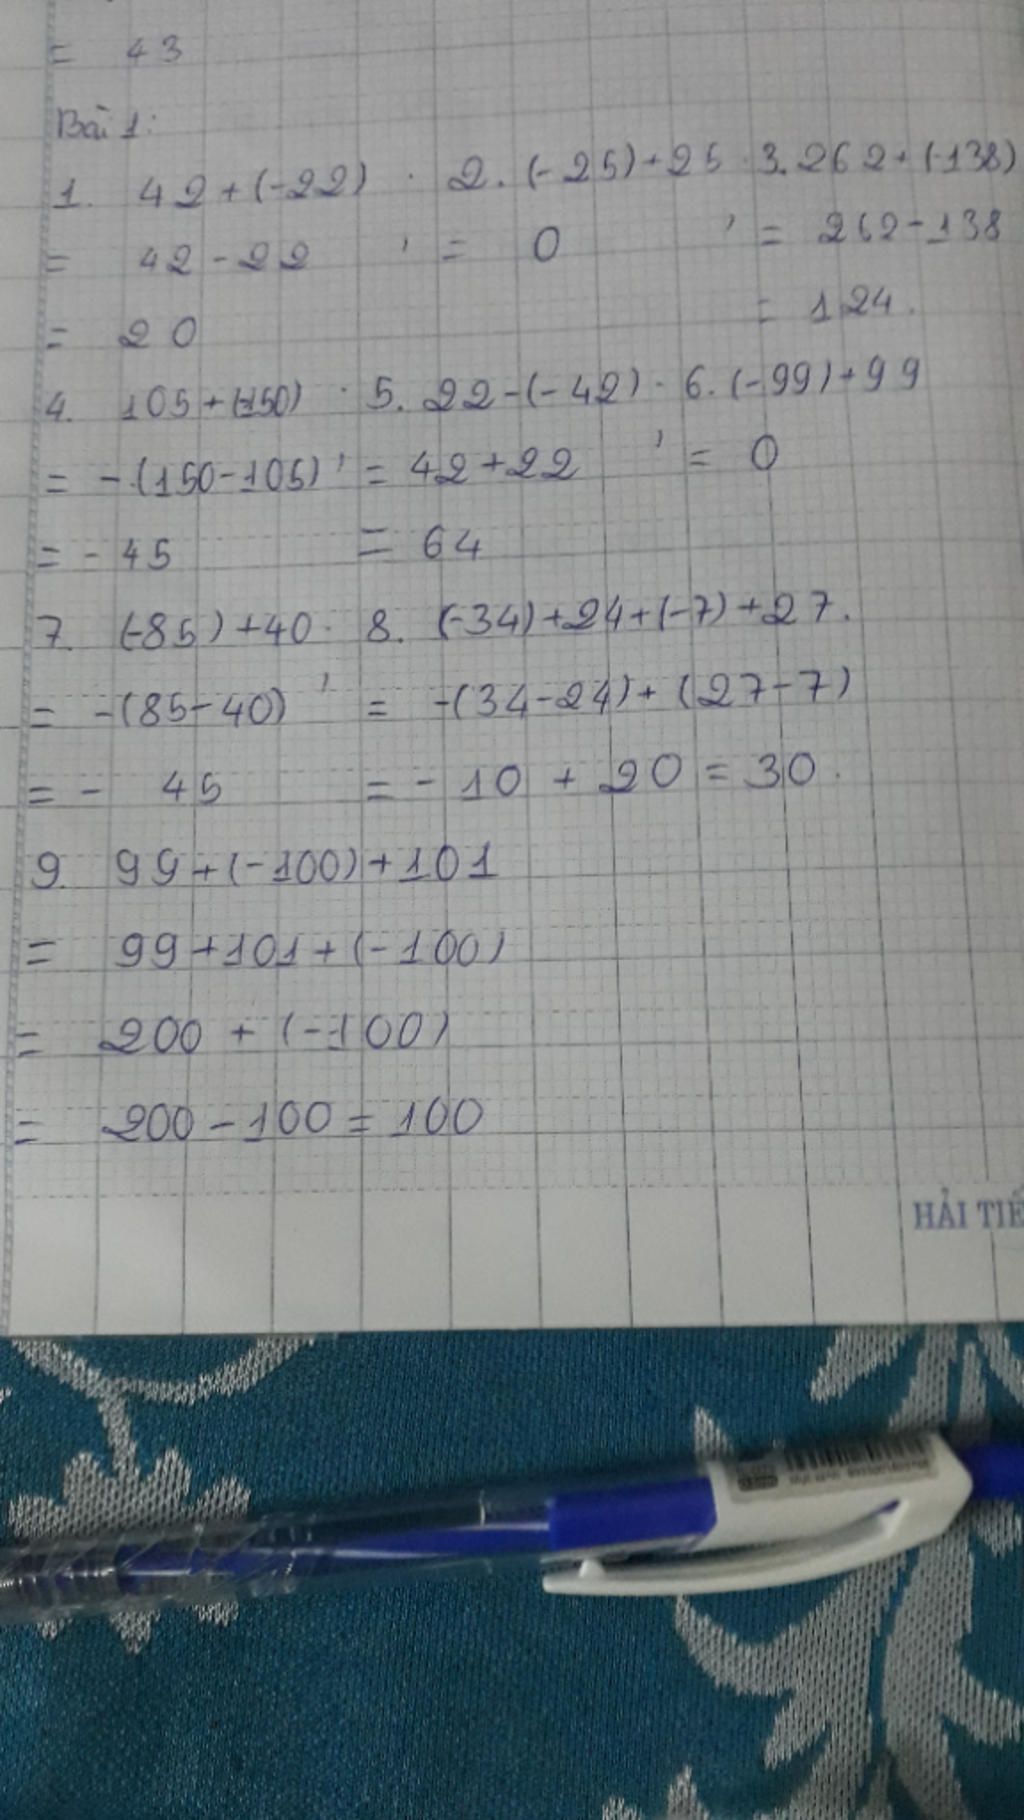 = 43
Bài 1:
1. 42+(-22) . 2. (-25)+25 . 3. 262+(-138)
= 42-22 , = 0 , = 262-138
= 20 = 124.
4. 105+(-150) . 5. 22-(-42) . 6. (-99)+99
= -(150-105) , = 42+22 , = 0
= -45 = 64
7. (-85)+40 . 8. (-34)+24+(-7)+27.
= -(85-40) , = -(34-24)+(27-7)
= - 45 = -10 + 20 = 30.
9. 99+(-100)+101
= 99+101+(-100)
= 200 + (-100)
= 200 - 100 = 100
HẢI TIẾ